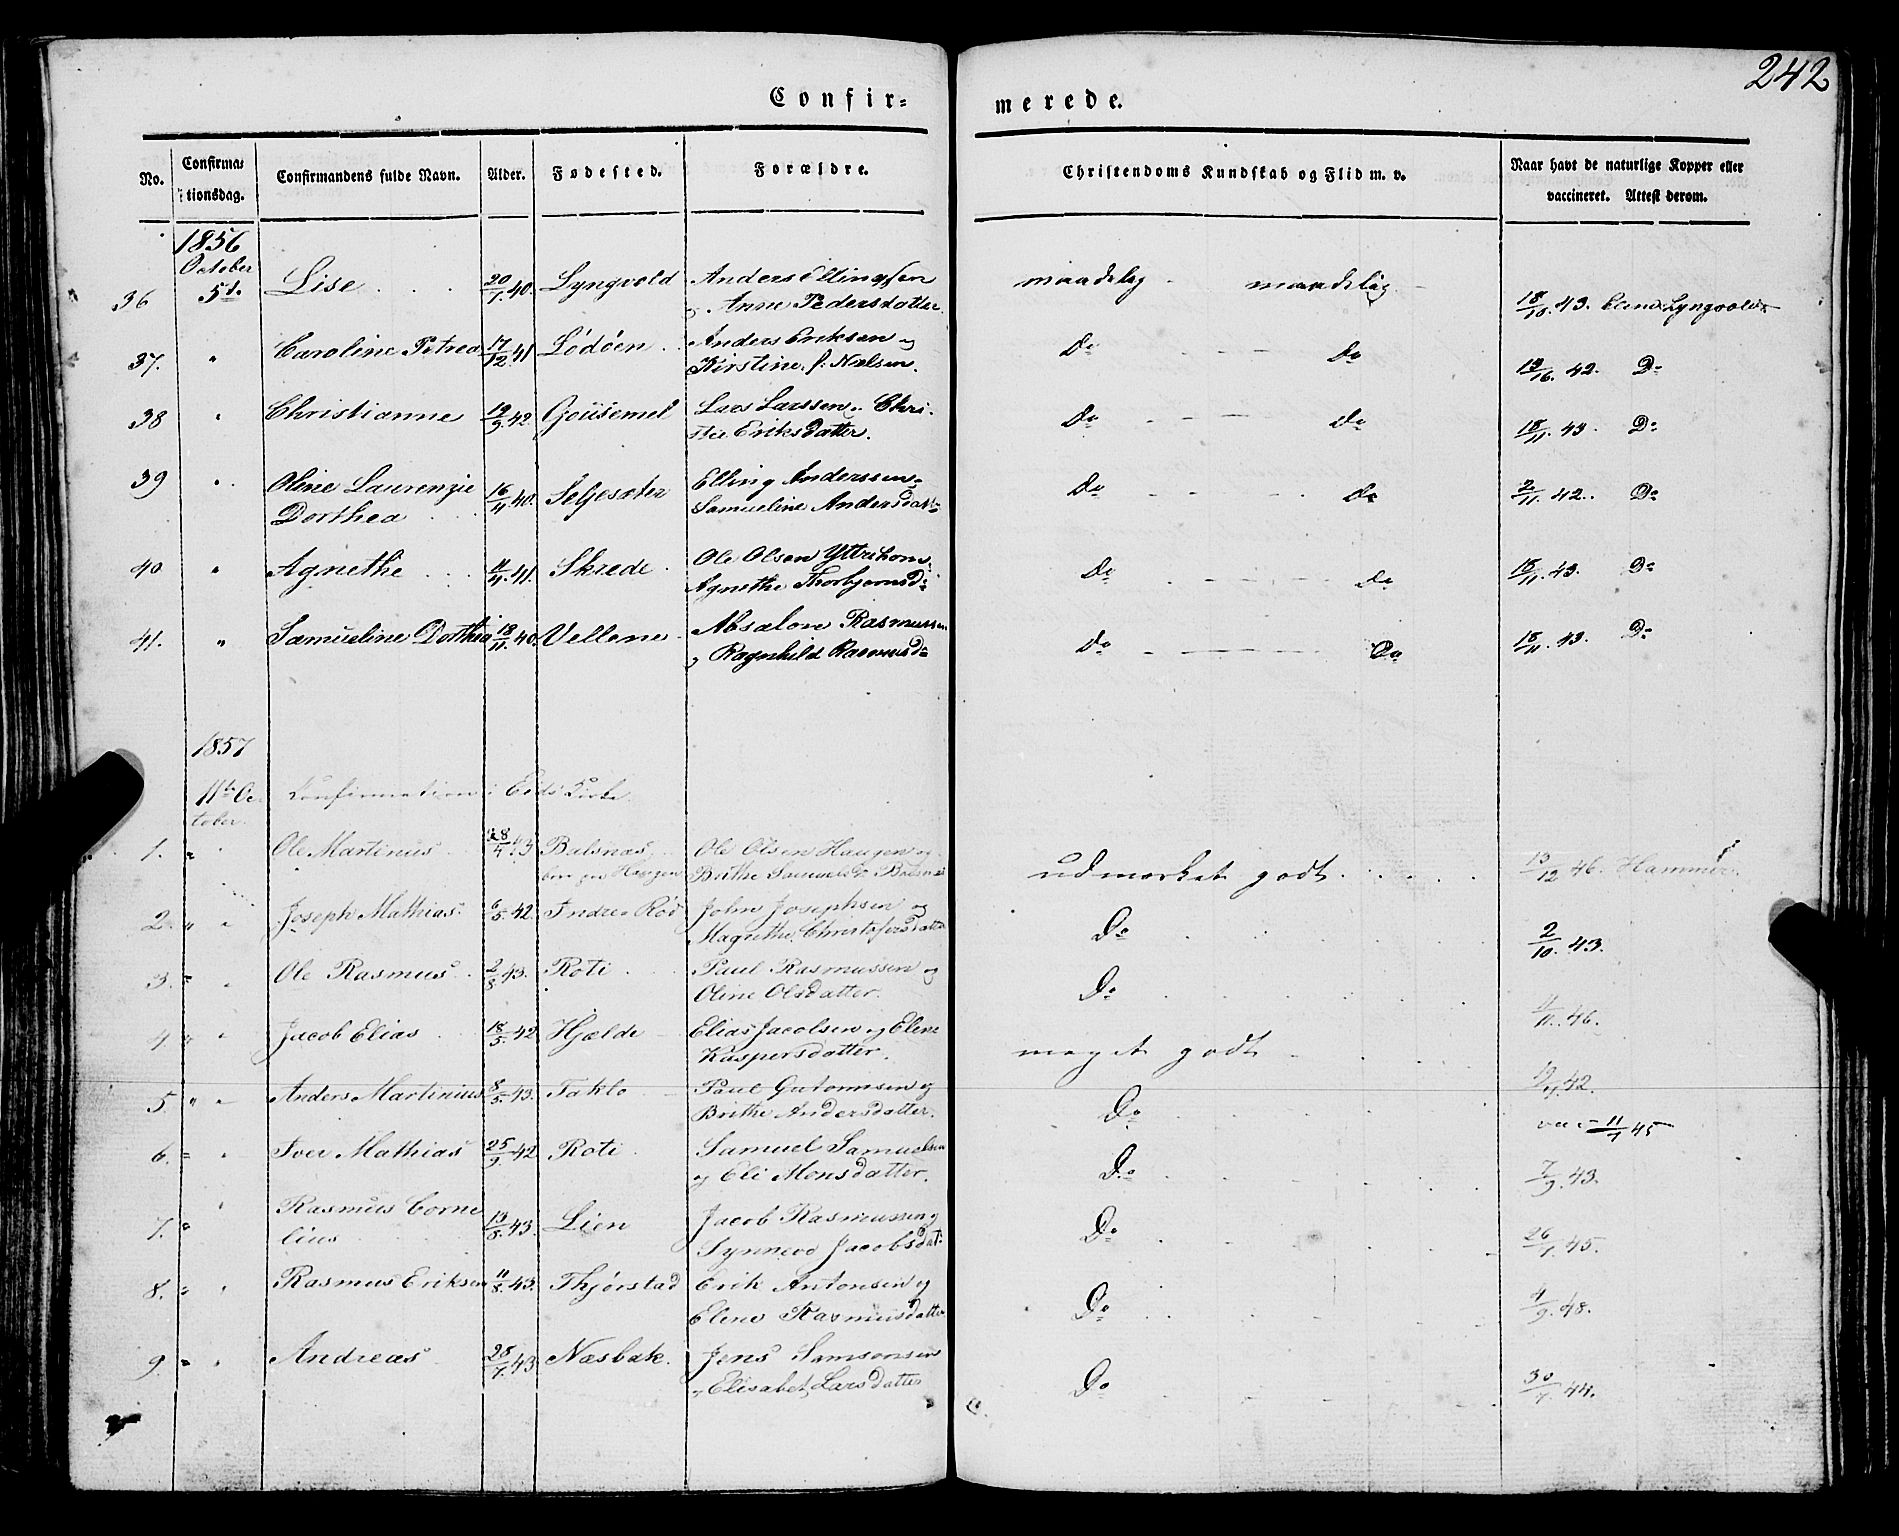 242
Confir-
merede.
No.
Confirma-
tionsdag.
Confirmandens fulde Navn.
Alder.
Fødested.
Forældre.
Christendoms Kundskab og Flid m. v.
Naar havt de naturlige Kopper eller
vaccineret. Attest derom.
1856
October
36 5t. Lise 20/7. 40. Lyngvold Anders Ellingsen maadelig maadelig 18/10. 43. Lyngvold
og Anne Pedersdatter.
37. " Caroline Petrea 17/12 41 Lødøen Anders Eriksen og Do Do 42. Do
Kirstine f: Nielsen.
38 " Christianne 19/9. 42. Lars Larssen Chri- Do Do 18/11. 43. Do
stie Eriksdatter.
39 " Oline Laurenzie 16/4 40. Seljesæter Elling Anderssen Do Do 2/11. 42. Do
Dorthea Samueline Andersdatt:
40 " Agnethe 4/4. 41. Skrede Ole Olsen Yttrehorn Do Do 18/11. 43. Do
Agnethe Thorbjørnsd:
41. " Samueline Dorthea 18/11. 40. Vellene Absalon Rasmussen Do Do 18/11. 43. Do
og Ragnhild Rasmusd:
1857
11te Oc- Confirmation i Eids Kirke.
tober.
1. " Ole Martinus 28/4 43 Balsnæs, Ole Olsen Haugen og udmærket godt 13/12 46. Hammer.
Haugen Brithe Samuelsd: Balsnæs
2. " " Joseph Mathias 6/5. 42. Indre Rød John Josephsen og Do 2/10. 43.
Magrethe Christofersdatter
3. " " Ole Rasmus 2/8 43. Roti Paul Rasmussen og Do 4/11. 46.
Oline Olsdatter.
4 " " Jacob Elias 18/5. 42 Hjelde Elias Jacobsen og Elene meget godt
Kaspersdatter.
5 " " Anders Martinius 8/5. 43. Taklo Paul Guttormsen og Do 42.
Brithe Andersdatter.
6. " " Iver Mathias 25/9. 42 Roti Samuel Samuelsen Do 7/9. 43.
vac 11/7 45
og Eli Monsdatter.
7. " " Rasmus Corne 13/8. 43. Lien Jacob Rasmussen og Do 26/1. 45.
lius Synneve Jacobsdat:
8. " " Rasmus Eriksen 11/8. 43. Thjørstad Erik Antonsen og Do 4/9. 48.
Elene Rasmusdatter
9. " " Andreas 28/7. 43 Næsbak. Jens Samsonsen Do 30/7. 44.
og Elisabet Larsdatter